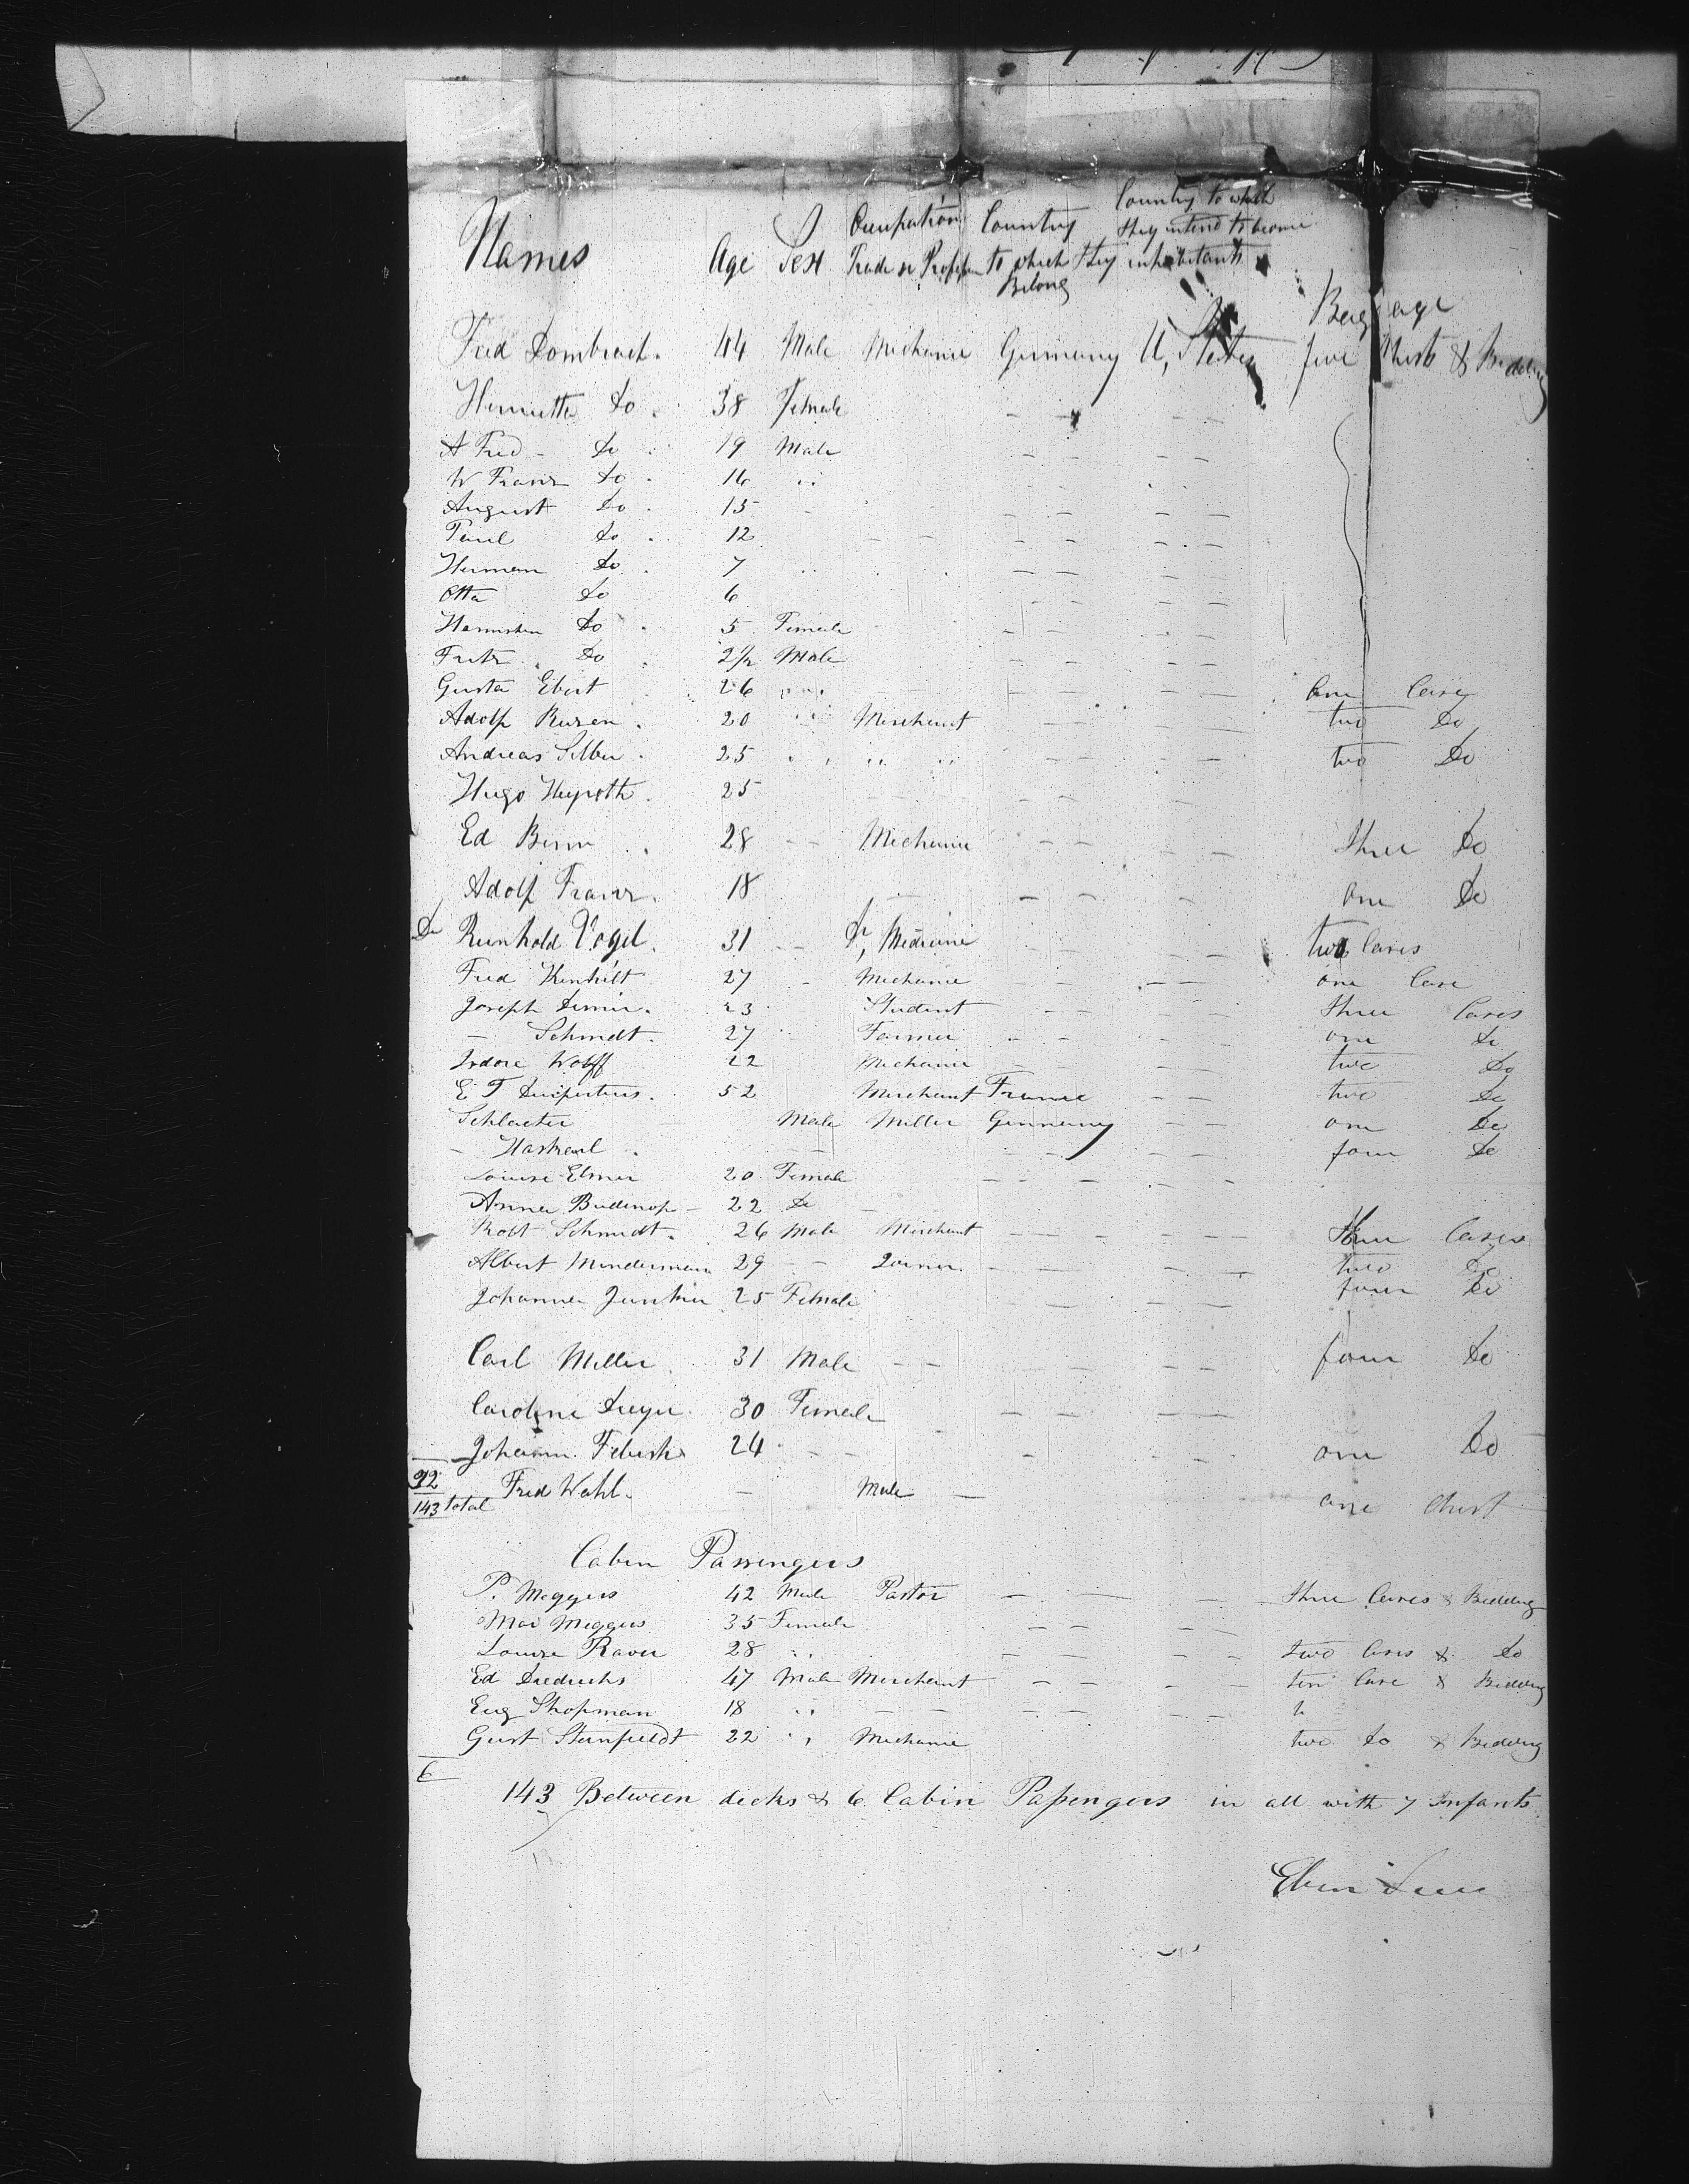 Country to which
Occupation Country they intend to become
Names Age Sex Trade or Profession to which they inhabitants
Belong
Baggage
Fred Dombrach 44 Male Mechanic Germany U, States five Chests & Bedding
Henriette Do 38 Female
A Fred Do 19 Male
W Franz Do 16
August Do 15
Paul Do 12
Herman Do 7
Otto Do 6
Do 5 Female
Fritz Do 2½ Male
Gusta Ebert 26 One Case
Adolf 20 Merchant two Do
Andreas Silber 25 two Do
Hugo Heyroth 25
Ed 28 Mechanic three Do
Adolf Franz 18 one Do
Dr Reinhold Vogel 31 Dr, Medicine two Cases
Fred 27 Mechanic one Case
Joseph 23 Student three Cases
— Schmidt 27 Farmer one Do
Isdore Wolff 22 Mechanic two Do
E T 52 Merchant France two Do
Male Miller Germany one Do
four Do
Louise Elmer 20 Female
Anna 22 Do
Robt Schmidt 26 Male Merchant three Cases
Albert Mindermann 29 two Do
Johanna 25 Female four Do
Carl Miller 31 Male four Do
Caroline Dreyer 30 Female
Johann 24 one Do
32 Fred Wahl Male one Chest
143 total
Cabin Passengers
P. Meggers 42 Male Pastor three Cases & Bedding
Meggers 35 Female
Louise 28 two Cases & Do
Ed Diedrichs 47 Male Merchant Case & Bedding
Eug Shopman 18
Gust Steinfeldt 22 Mechanic two Do & Bedding
6
143 Between decks & 6 Cabin Passengers in all with 7 Infants
Eben